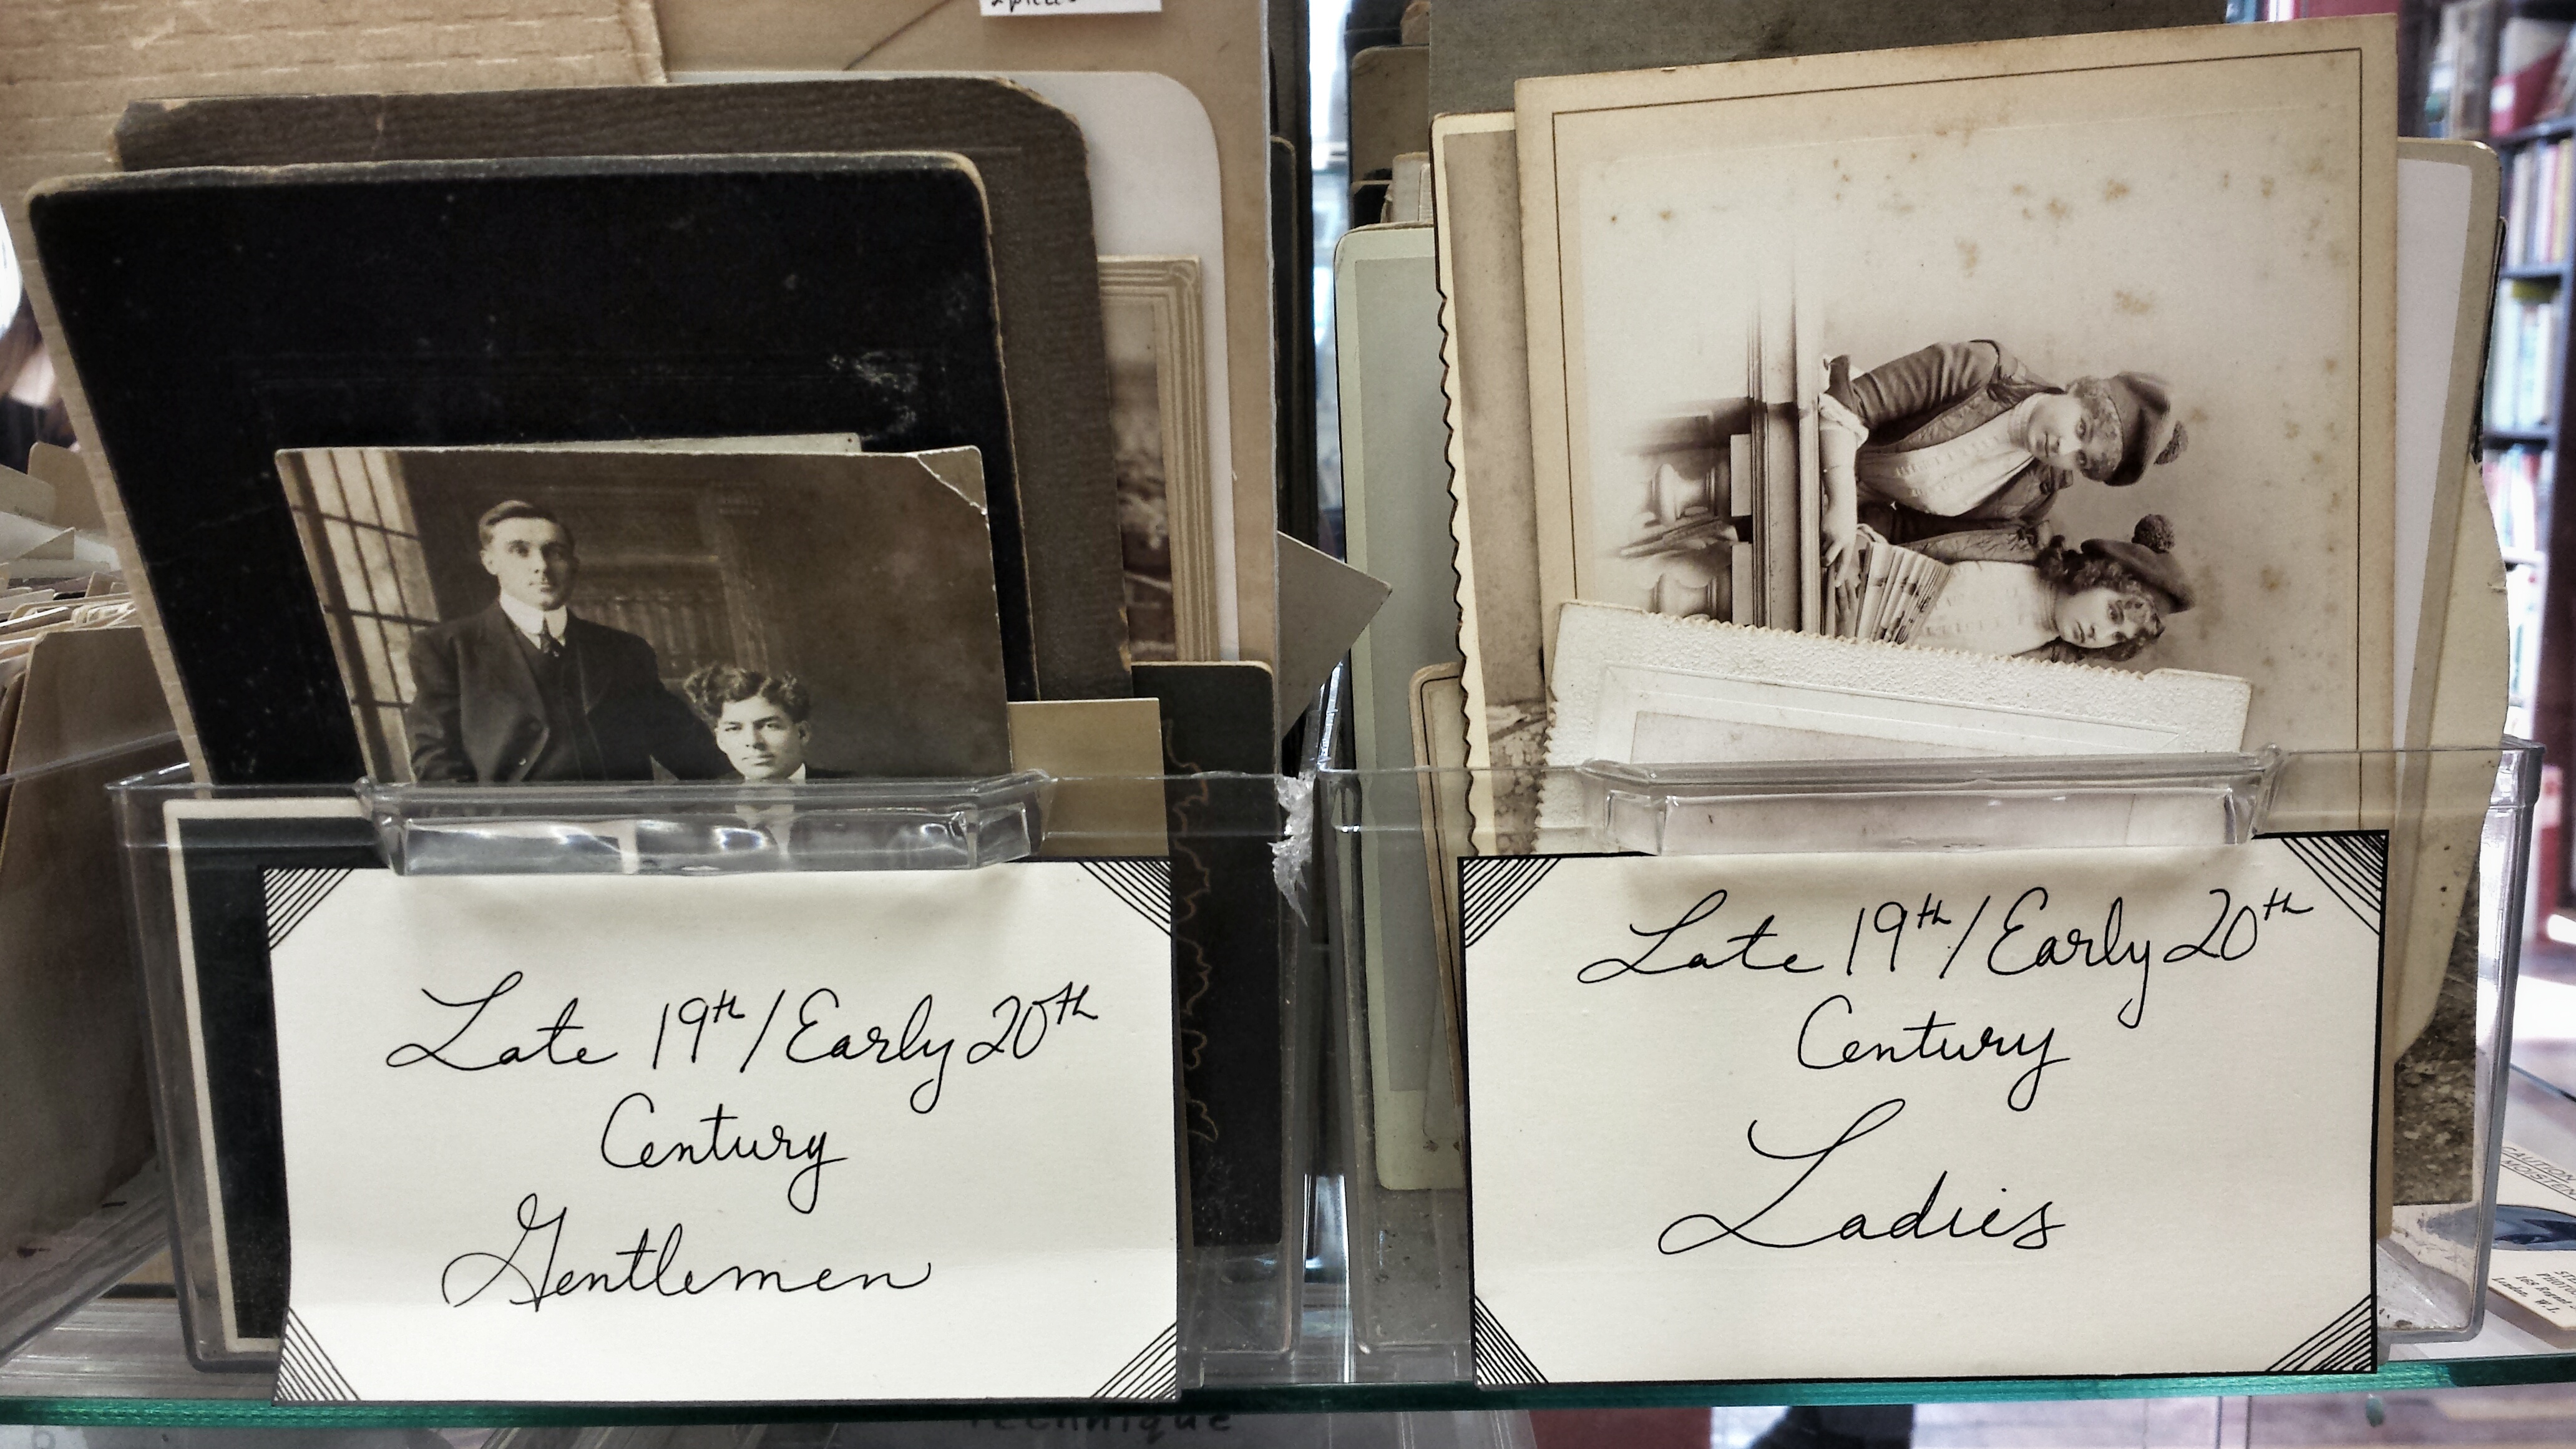 Late 19th/Early 20th
Century
Gentlemen
Late 19th/Early 20th
Century
Ladies
CAUTION
Technique
London, W.1.